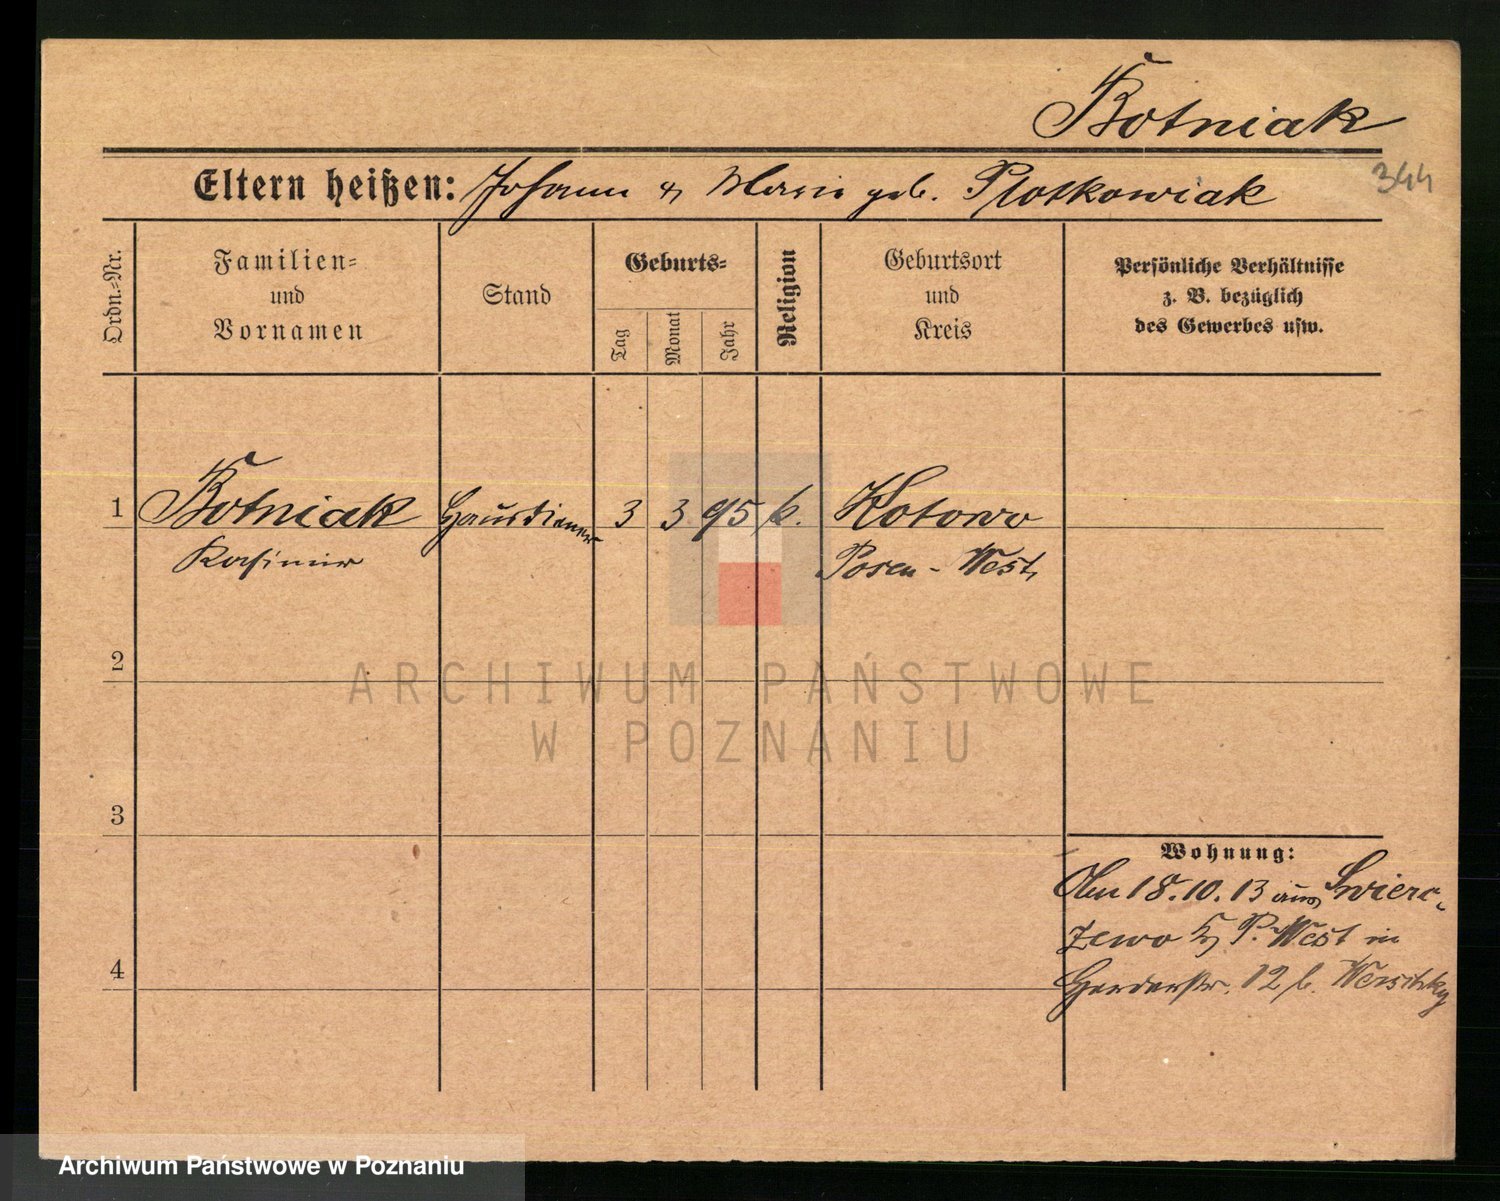 Botniak
344
Eltern heißen: Johann u Marie geb. Plotkowiak
Ordn.-Nr.
Familien-
und
Vornamen
Stand
Geburts-
Tag
Monat
Jahr
Religion
Geburtsort
und
Kreis
Persönliche Verhältnisse
z. B. bezüglich
des Gewerbes usw.
1 Botniak Hausdiener 3 3 95 k. Kotowo
Kasimir Posen - West
2
ARCHIWUM PAŃSTWOWE
W POZNANIU
3
Wohnung:
Am 18.10.13 aus Swierc-
zewo P. West in
4
12 b.
Archiwum Państwowe w Poznaniu